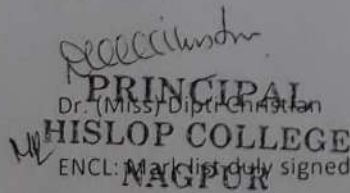 PRINCIPAL
Dr. (Miss) Dipti Christian
HISLOP COLLEGE
ENCL: Mark list duly signed
NAGPUR